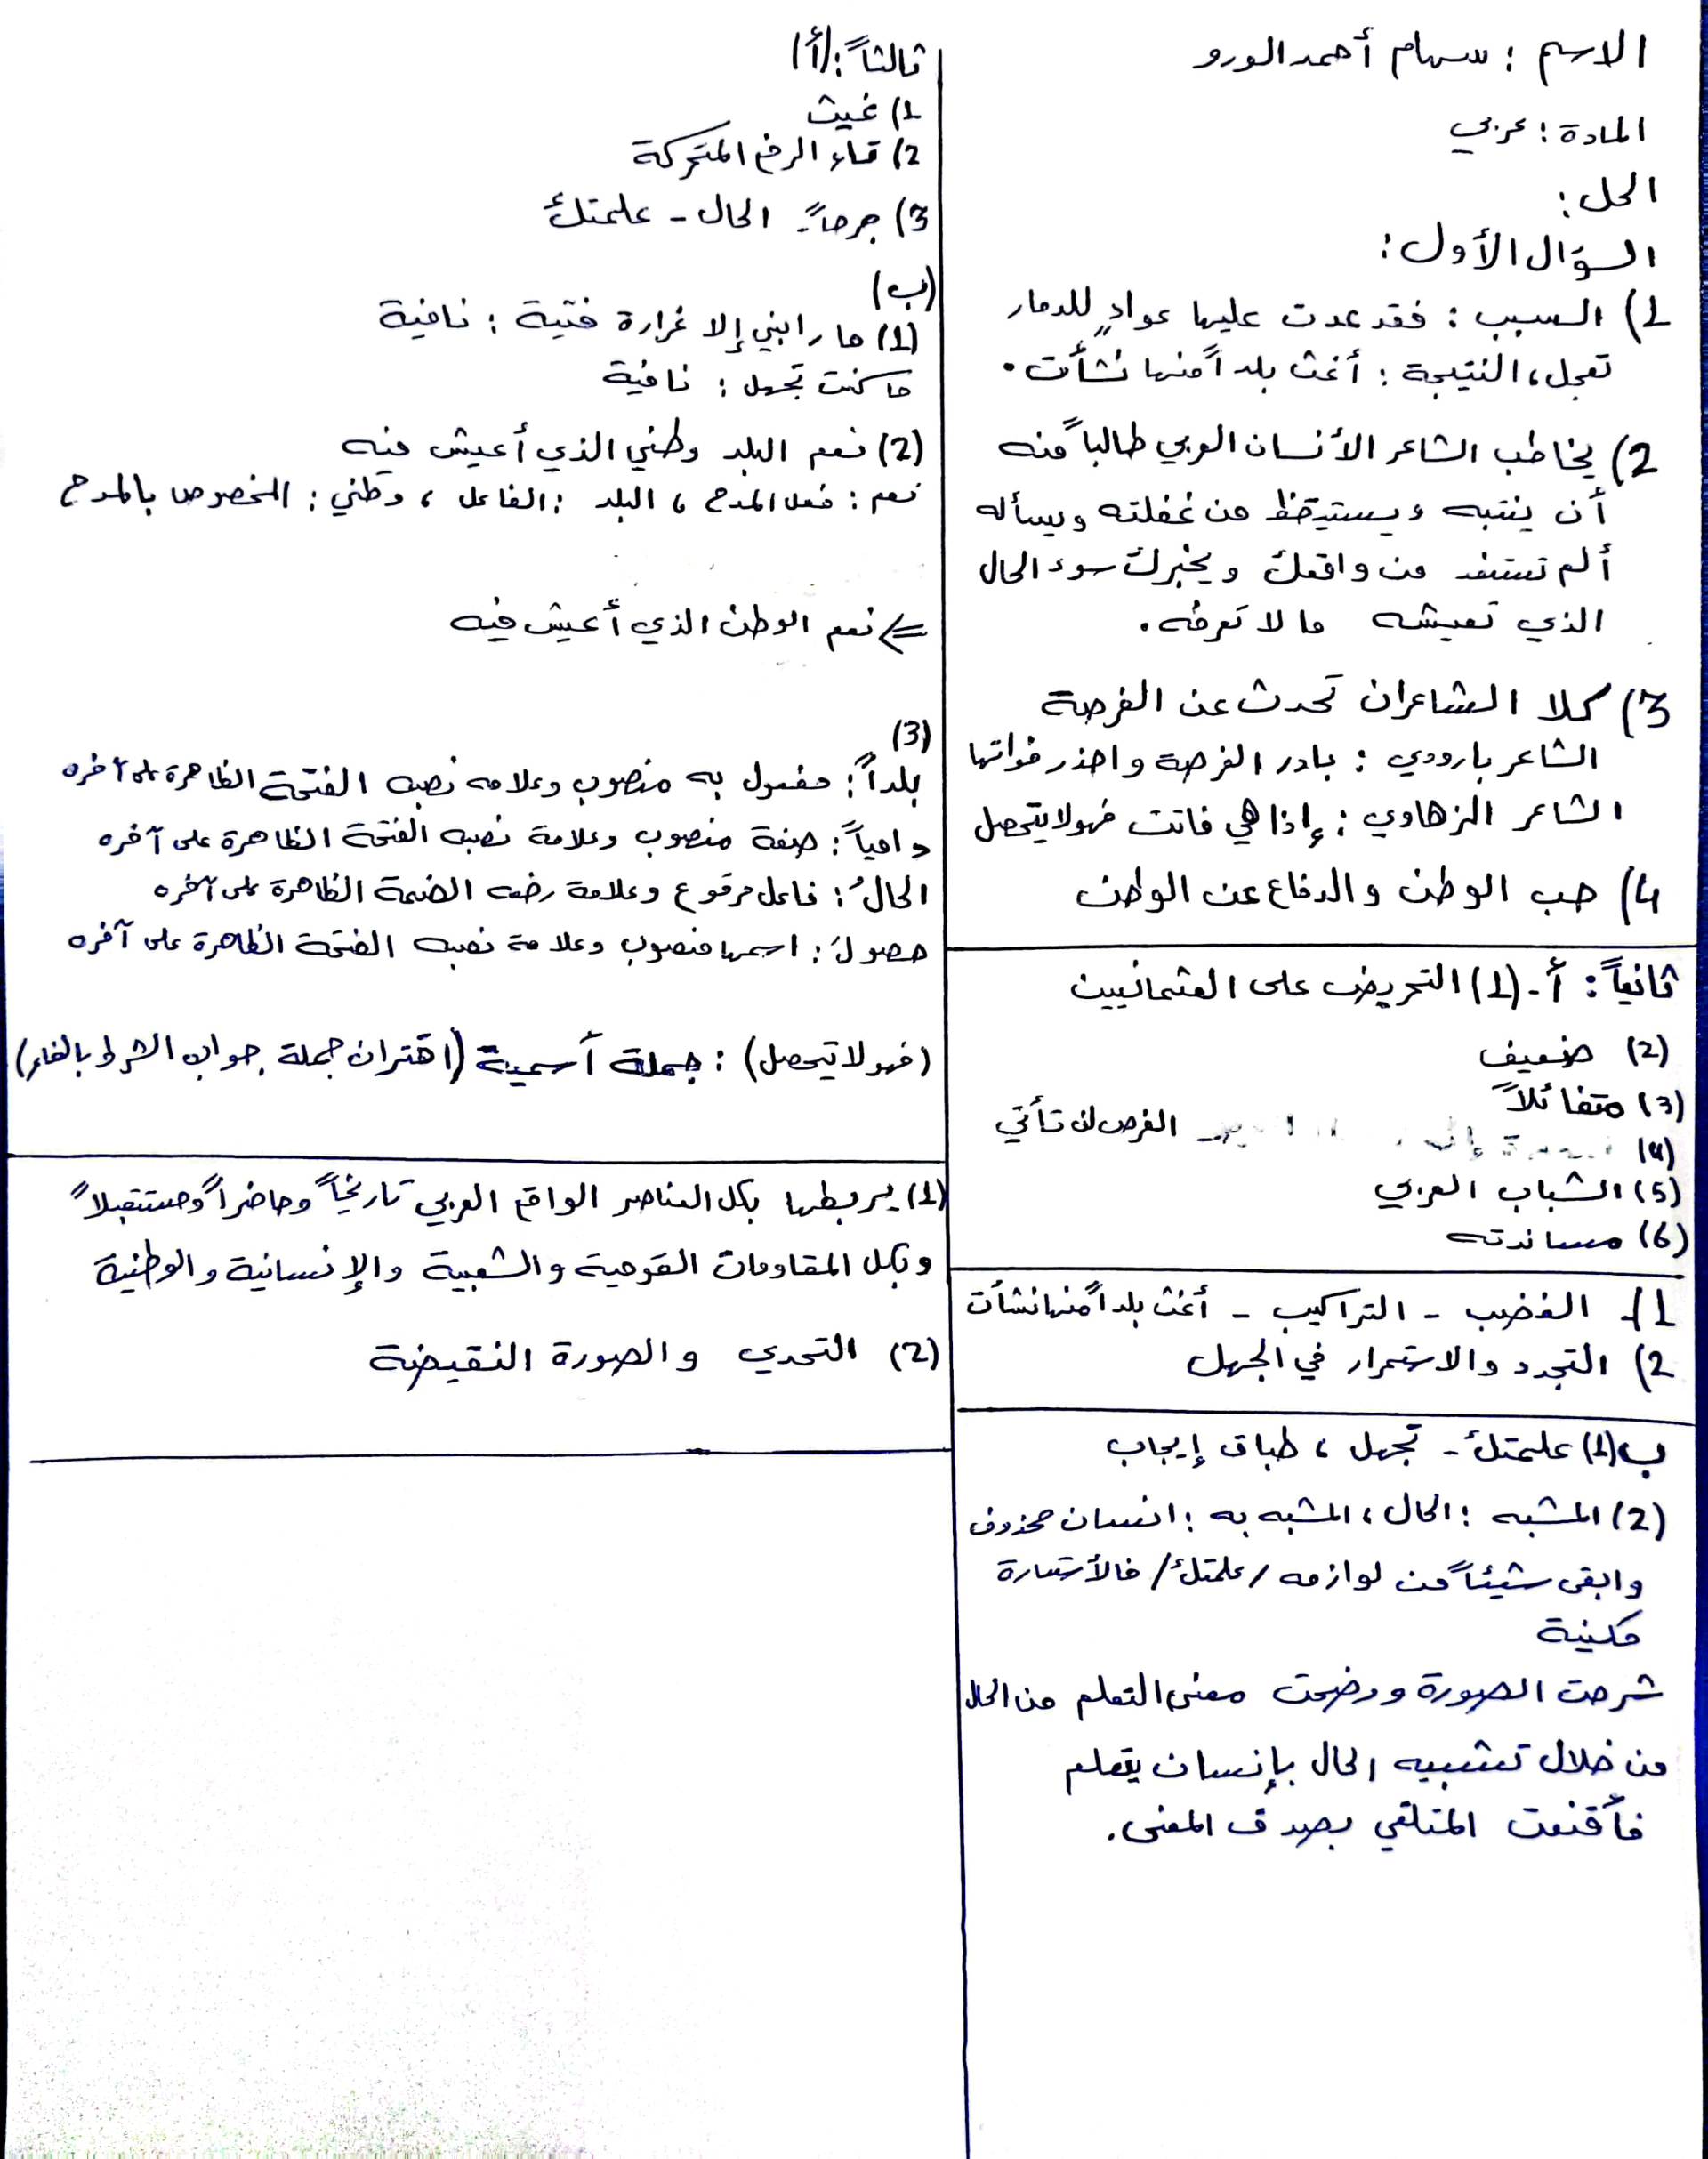 الاسم : سهام أحمد الورو
المادة : عربي
الحل :
السؤال الأول :
1) السبب : فقد عدت عليها عوادٍ للدمار
تعجل ، النتيجة : أغث بلداً منها نشأت .
2) يخاطب الشاعر الأنسان العربي طالباً منه
أن ينتبه ويستيقظ من غفلته ويسأله
ألم تستفد من واقعك ويخبرك سوء الحال
الذي تعيشه ما لا تعرفه .
3) كلا الشاعران تحدث عن الفرصة
الشاعر بارودي : بادر الفرصة واحذر فواتها
الشاعر الزهاوي : إذا هي فاتت فهو لا يتحصل
4) حب الوطن والدفاع عن الوطن
ثانياً : أ - (1) التحريض على العثمانيين
(2) ضعيف
(3) متفائلاً
(4) الفرص لن تأتي
(5) الشباب العربي
(6) مساندته
1) الغضب - التراكيب - أغث بلداً منها نشأت
2) التجدد والاستمرار في الجهل
ب (1) علمتك - تجهل ، طباق إيجاب
(2) المشبه : الحال ، المشبه به : انسان محذوف
وابقى شيئاً من لوازمه / علمتك / فالأستعارة
مكنية
شرحت الصورة ووضحت معنى التعلم من الحال
من خلال تشبيه الحال بإنسان يتعلم
فأقنعت المتلقي بصدق المعنى .
ثالثاً : (أ)
1) غيث
2) تاء الرفع المتحركة
3) جرحاً - الحال - علمتك
(ب)
(1) ما رابني إلا غرارة فتية : نافية
ما كنت تجهل : نافية
(2) نعم البلد وطني الذي أعيش فيه
نعم : فعل المدح ، البلد : الفاعل ، وطني : المخصوص بالمدح
⇐ نعم الوطن الذي أعيش فيه
(3)
بلداً : مفعول به منصوب وعلامه نصبه الفتحة الظاهرة على آخره
دامياً : صفة منصوب وعلامة نصبه الفتحة الظاهرة على آخره
الحالُ : فاعل مرفوع وعلامة رفعه الضمة الظاهرة على آخره
حصولَ : اسمها منصوب وعلامة نصبه الفتحة الظاهرة على آخره
(فهو لا تيحصل) : جملة آسمية (اقتران جملة جواب الشرط بالفاء)
(1) يربطها بكل العناصر الواقع العربي تاريخاً وحاضراً ومستقبلاً
وبكل المقاومات القومية والشعبية والإنسانية والوطنية
(2) التحدي والصورة النقيضة